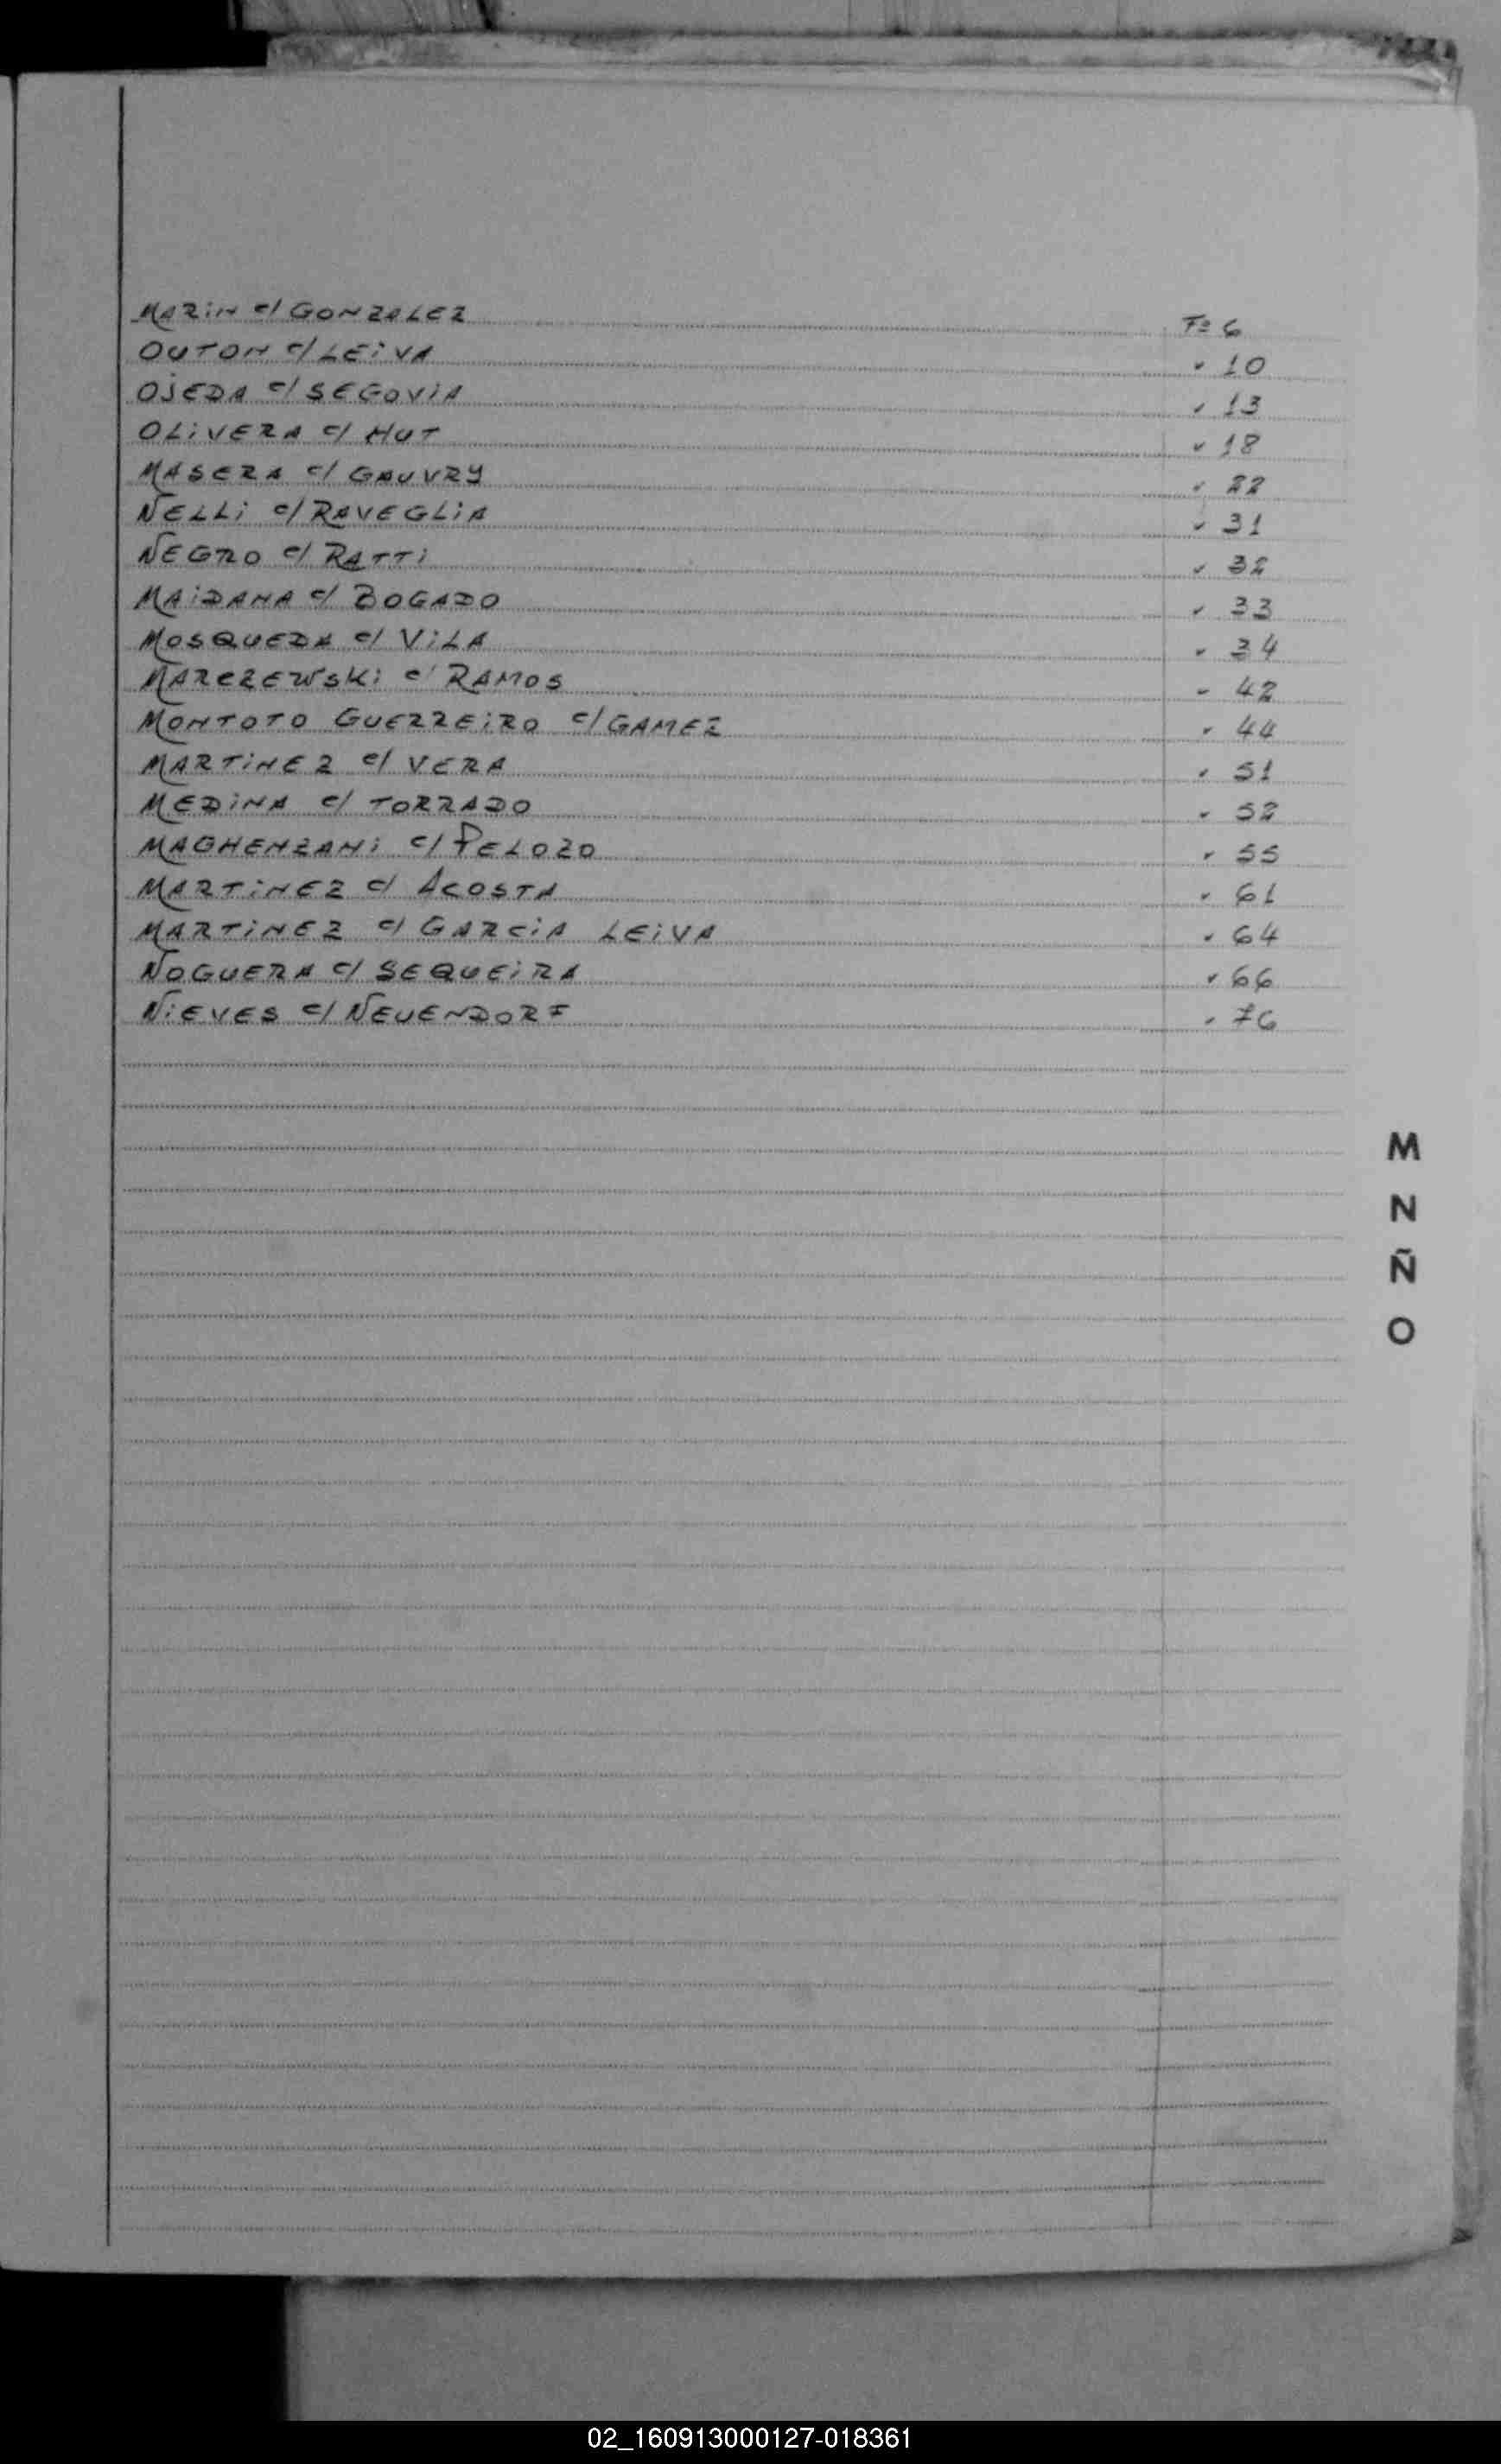 MARiN c/ GONZALEZ Fº 6
OUTON c/ LEiVA " 10
OJEDA c/ SEGOViA " 13
OLiVERA c/ HUT " 18
MASERA c/ GAUVRY " 22
NELLi c/ RAVEGLiA " 31
NEGRO c/ RATTi " 32
MAiDANA c/ BOGADO " 33
MOSQUEDA c/ ViLA " 34
MARCZEWSKi c/ RAMOS " 42
MONTOTO GUERREiRO c/ GAMEZ " 44
MARTiNEZ c/ VERA " 51
MEDiNA c/ TORRADO " 52
MAGHENZANi c/ PELOZO " 55
MARTiNEZ c/ ACOSTA " 61
MARTiNEZ c/ GARCiA LEiVA " 64
NOGUERA c/ SEQUEiRA " 66
NiEVES c/ NEUENDORF " 76
M
N
Ñ
O
02_160913000127-018361